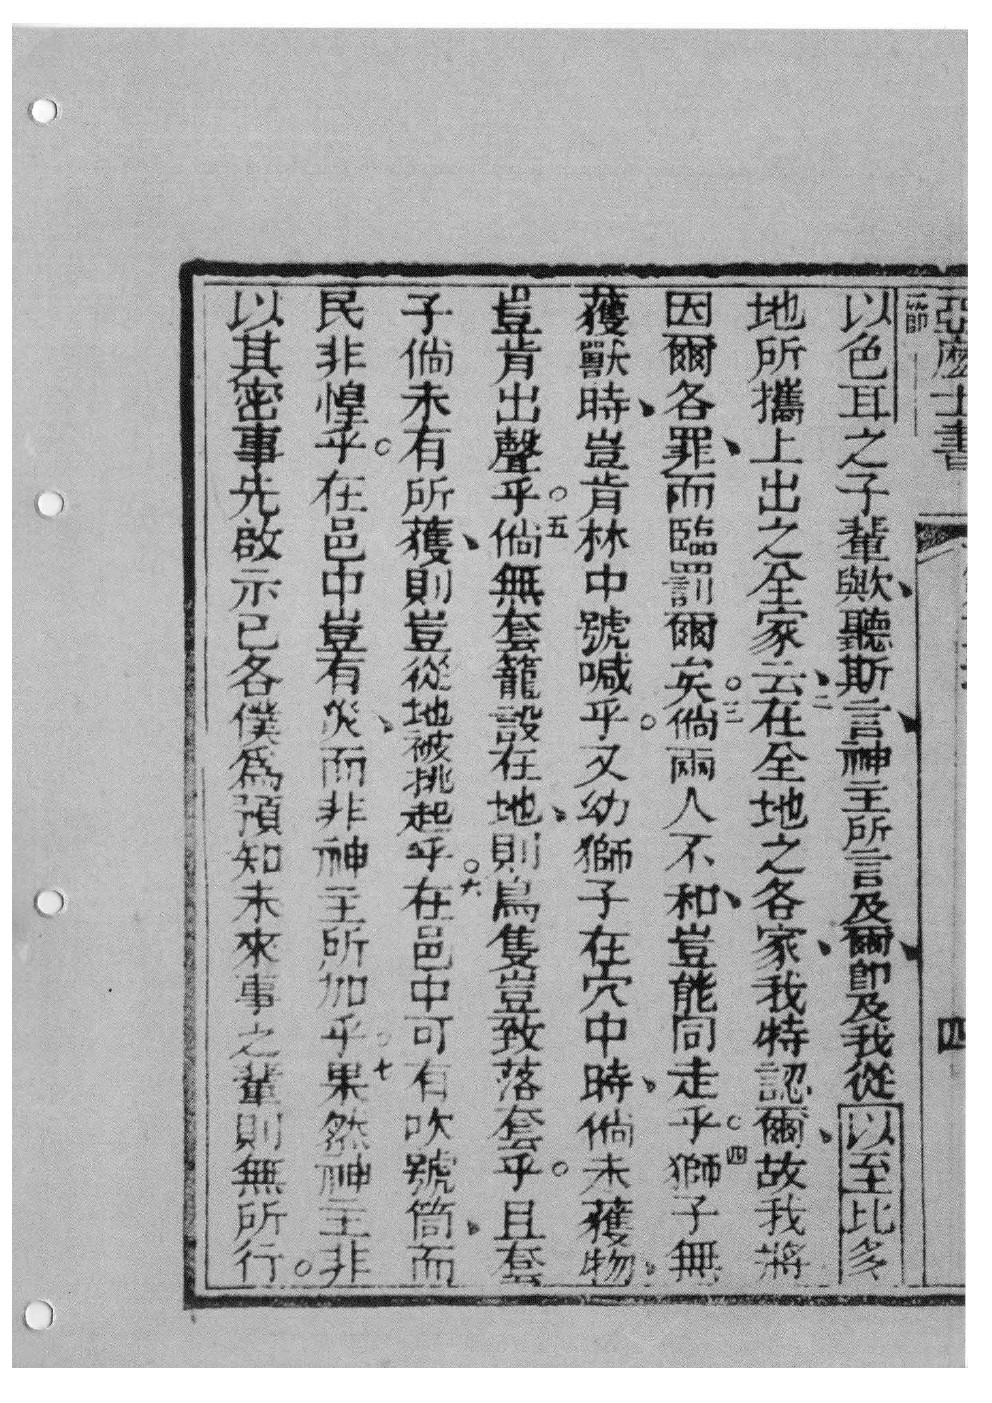 亞麼士書
四
節
以色耳之子輩歟、聽斯言、神主所言及爾、即及我從以至比多
地所攜上出之全家云、二在全地之各家、我特認爾、故我將
因爾各罪、而臨罰爾矣。三倘兩人不和、豈能同走乎。四獅子無
獲獸時、豈肯林中號喊乎。又幼獅子在穴中時、倘未獲物、
豈肯出聲乎。五倘無套籠設在地、則鳥隻豈致落套乎。且套
子倘未有所獲、則豈從地被挑起乎。六在邑中可有吹號筒、而
民非惶乎。在邑中豈有災、而非神主所加乎。七果然神主非
以其密事先啟示己各僕為預知未來事之輩、則無所行。